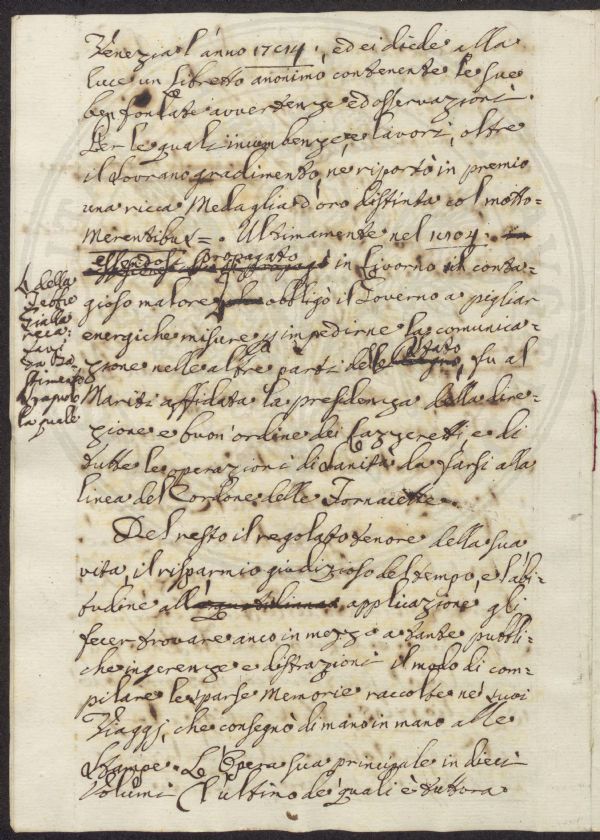 Venezia l'anno 1794., ed ei diede alla
luce un libretto anonimo contenente le sue
ben fondate avvertenze ed osservazioni.
Per le quali incombenze, e lavori, oltre
il Sovrano gradimento, ne riportò in premio
una ricca Medaglia d'oro distinta col motto=
Merentibus=. Ultimamente nel 1804.
essendosi propagato in Livorno il conta=
gioso malore obbligò il Governo a pigliar
energiche misure p impedirne la comunica=
zione nelle altre parti dello Stato, fu al
Mariti affidata la presidenza della dire=
zione e buon'ordine dei Lazzeretti, e di
tutte le operazioni di Sanità da farsi alla
linea del Cordone delle Fornacette.
Del resto il regolato tenore della sua
vita, il risparmio giudizioso del tempo, e l'abi=
tudine all' applicazione gli
fecer trovare anco in mezzo a tante pubbli=
che ingerenze e distrazioni il modo di com=
pilare le sparse Memorie raccolte ne' suoi
Viaggj, che consegnò di mano in mano alle
Stampe. L'Opera sua principale in dieci
Volumi (l'ultimo de' quali è tuttora
della
Febbre
Gialla
reca=
tavi
da Ba=
stimento
Spagnolo
la quale